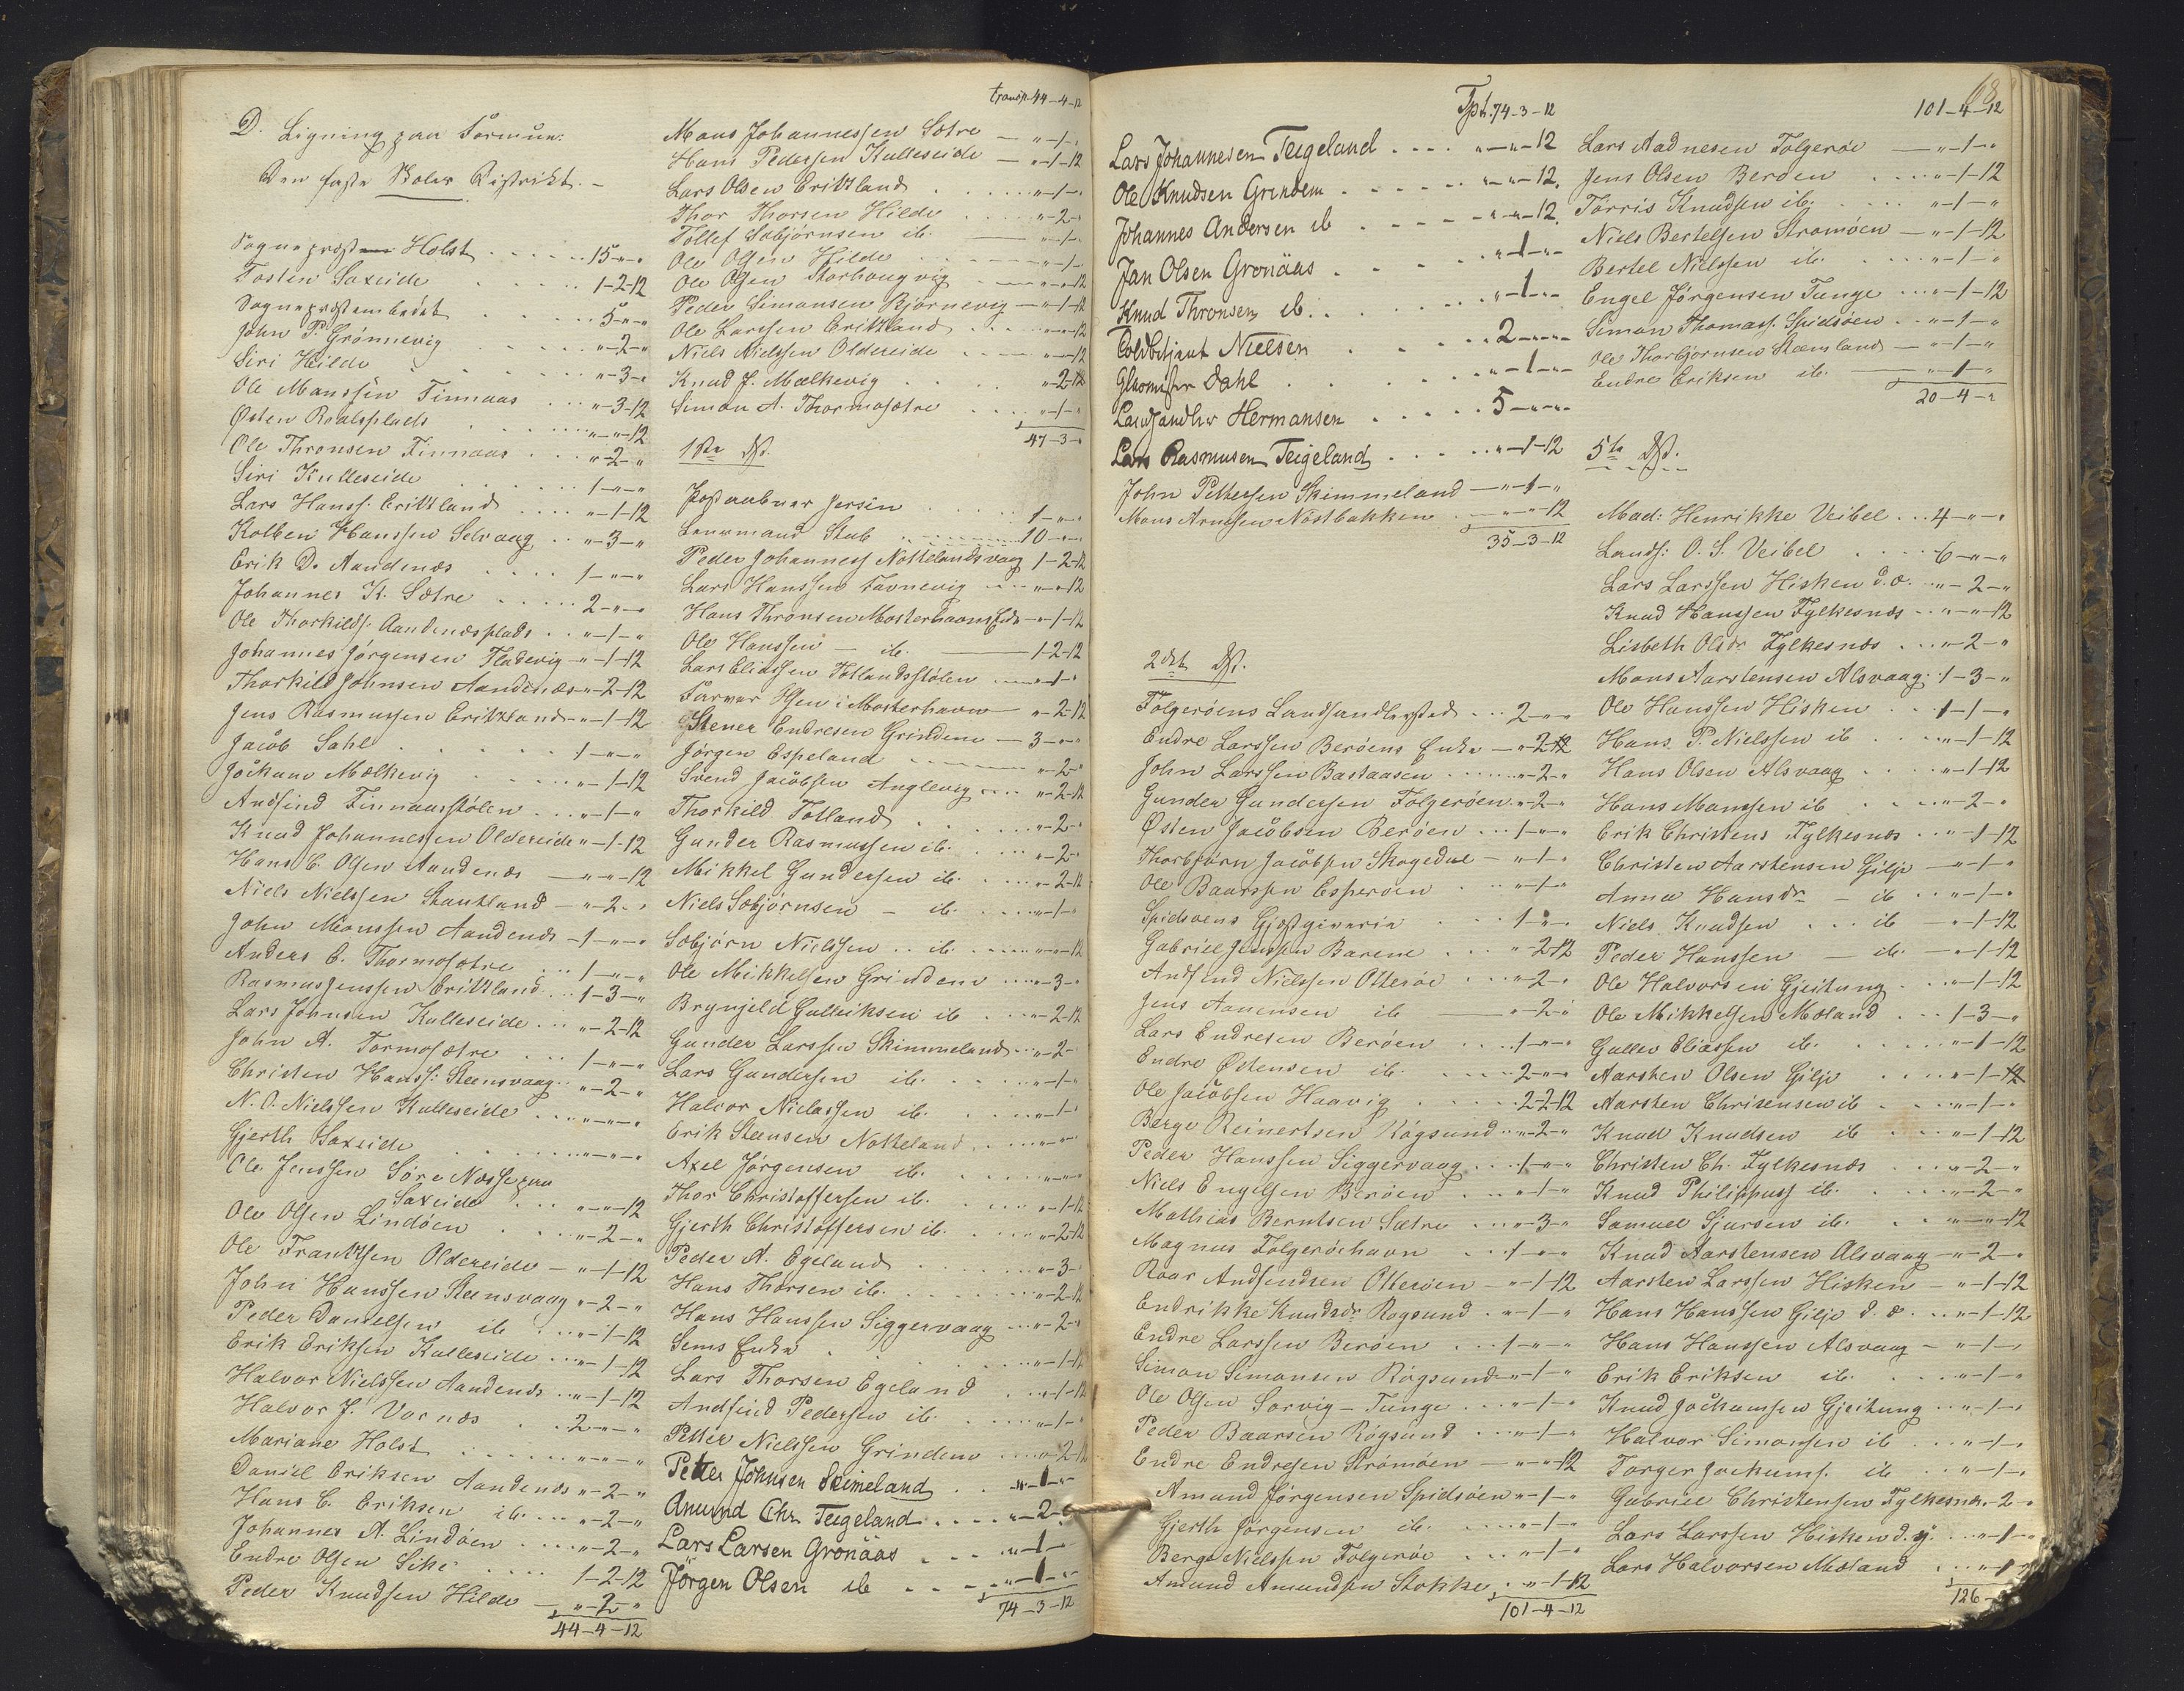 D. Ligning paa Formue:
Den faste Skoles Distrikt. –
Sognepræst Holst . . . . . 15-"-"
Tosten Saxeide . . . . 1-2-12
Sognepræstembedet . . . 5-"-"
John P. Grønnevig . . . "-2-"
Siri Hilde . . . . "-3-"
Ole Monssen Finnaas . . . "-3-12
Østen Roalsplads . . . . "-"-12
Ole Thronsen Finnaas . . . "-2-"
Siri Kulleseide . . . . 1-"-"
Lars Hanss. Eritzland . . . "-1-12
Kolben Hanssen Selvaag . . "-3-"
Erik D. Aandenæs . . . . 1-"-"
Johannes K. Sætre . . . . 2-"-"
Ole Thorkilds. Aandenæsplads . . "-1-"
Johannes Jørgensen Fladevig - "-1-12
Thorkild Johnsen Aandenæs - "-2-12
Jens Rasmussen Eritzland - "-1-12
Jacob Dahl . . . . 1-"-"
Jochum Mælkevig . . . "-1-12
Andfind Finnaasstølen . . . "-1-"
Knud Johannessen Oldereide "-1-12
Hans C. Olsen Aandenæs — "-"-12
Niels Nielssen Stautland — "-2-"
John Monssen Aandenæs - 1-"-"
Anders O. Thormosætre . . . 1-"-"
Rasmus Jenssen Eritzland . . 1-3-"
Lars Johnsen Kulleseide . . . "-2-12
John A. Tormosætre . . . 1-"-"
Christen Hanss: Steensvaag . . "-2-"
N. O. Nielssen Kulleseide . . . "-"-"
Gjerth Saxeide . . . . "-"-"
Ole Jenssen Søre Næsse paa
Saxeide . . "-"-12
Ole Olsen Lindøen . . . "-2-"
Ole Frantzen Oldereide — "-1-12
John Hanssen Steensvaag "-2-"
Peder Danielsen ib . . . "-1-12
Erik Eriksen Kulleseide . . . "-1-12
Halvor Nielssen Aandenæs . . "-1-12
Halvor J. Vornæs . . 2-"-"
Mariane Holst . . . . "-"-"
Daniel Eriksen Aandenæs "-2-"
Hans C. Eriksen ib. . . . "-2-"
Johannes A. Lindøen . . . "-2-"
Endre Olsen Siké . . . . 1-2-12
Peder Knudsen Hilde — "-2-"
44-4-12
transp. 44-4-12
Mons Johannessen Sætre — "-1-"
Hans Pedersen Kulleseide — "-1-12
Lars Olsen Eritzland . . . . "-1-"
Thor Thorsen Hilde . . . "-2-"
Tollef Sebjørnsen ib. — "-1-"
Ole Olsen Hilde . . . "-1-"
Ole Olsen Storhougvig . . . "-"-12
Peder Simonsen Bjørnevig — "-1-12
Ole Larssen Eritzland . . . "-"-12
Niels Nielssen Oldereide . . . "-"-12
Knud J. Mælkevig . . . "-2-12
Simon A. Thormosætre . . . . "-1-"
47-3-"
1ste Dst.
Postaabner Jersin . . . 1-"-"
Lensmand Stub . . . . 10-"-"
Peder Johanness Nottelandsvaag 1-2-12
Lars Hanssen Favnevig . . . "-"-12
Hans Thronsen Mosterhavns Enke "-1-12
Ole Hanssen — ib. — 1-2-12
Lars Eliassen Totlandsstølen . . . "-1-"
Farver Olsen i Mosterhavn — "-2-12
Stener Endresen Grindem — 3-"-"
Jørgen Espeland . . . . "-2-"
Svend Jacobsen Anglevig . . . "-2-12
Thorkild Totland . . . "-2-"
Gunder Rasmussen ib. . . . "-2-"
Mikkel Gundersen ib. . . . "-2-12
Niels Sebjørnsen — ib. . . . "-1-"
Sebjørn Nielssen . . ib. . . . "-"-12
Ole Mikkelsen Grindem . . . "-3-"
Brynjeld Gulleiksen ib . . . "-2-12
Gunder Larssen Skimmeland . . "-2-"
Lars Gundersen ib. . . . "-1-"
Halvor Nielassen ib. . . . "-1-"
Erik Steensen Notteland . . . "-"-"
Axel Jørgensen ib. . . . "-"-"
Thor Christoffersen ib. . . . "-1-12
Gjerth Christoffersen ib. . . . "-2-12
Peder A. Egeland . . . . "-3-"
Hans Thorsen ib. . . . "-2-12
Hans Hanssen Siggervaag . . . "-2-"
Sems Enke . . . . "-1-12
Lars Thorsen Egeland . . . "-1-12
Andfind Pedersen ib. . . . "-1-"
Petter Nielssen Grindem . . . "-2-12
Petter Johnsen Skimeland . . "-1-"
Amund Chr. Teigeland . . . . "-2-"
Lars Larsen Gronäas . . . . "-1-"
Jörgen Olsen ib . . . . "-1-"
74-3-12
Tpt. 74-3-12
Lars Johannesen Teigeland . . . . "-"-12
Ole Knudsen Grindem . . . . "-"-12.
Johannes Andersen ib . . . "-"-12
Jan Olsen Gronäas . . . . "-1-"
Knud Thronsen ib. . . . . "-1-"
Toldbetjent Nielsen . . . . 2-"-"
Glasmester Dahl . . . . "-1-"
Landhandler Hermansen . . . . 5-"-"
Lars Rasmusen Teigeland . . . . "-1-12
John Pettersen Skimmeland — "-1-"
Mons Arnesen Nöstbakken . . "-"-12
35-3-12
2det Dst.
Folgerøens Landhandlersted . . . 2-"-"
Endre Larssen Berøens Enke — "-2-12
John Larssen Bastaasen . . . "-2-"
Gunder Gundersen Folgerøen . "-2-"
Østen Jacobsen Berøen . . . 1-"-"
Thorbjørn Jacobsen Skogedal — "-1-"
Ole Baarssen Esperøen . . . "-1-"
Spidsøens Gjæstgiverie . . . 1-"-"
Gabriel Jenssen Barene . . . "-2-12
Andfind Nielssen Otterøe . . . "-2-"
Jens Aanensen ib — "-2-"
Lars Endresen Berøen . . . . 1-"-"
Endre Østensen ib. . . . 2-"-"
Ole Jacobsen Haavig . . . . 2-2-12
Berge Reinertsen Røgsund . . "-2-"
Peder Hanssen Siggervaag . . . 1-"-"
Niels Engelsen Berøen . . . "-1-"
Mathias Berntsen Sætre . . . "-3-"
Magnus Folgerøehavn . . . 1-"-"
Roar Andfindsen Otterøen — "-1-12
Endrikke Knudsdr. Rogsund . . "-1-"
Endre Larssen Berøen . . . 1-"-"
Simon Simonsen Rögsund — "-1-"
Ole Olsen Sørvig – Tunge . . . "-1-"
Peder Baarsen Rögsund . . . "-1-"
Endre Endresen Strömøen — "-"-12
Amund Jörgensen Spidsöen "-1-"
Gjerth Jörgensen ib. . . . "-1-"
Berge Nielssen Folgerøe . . . "-1-"
Amund Amundsen Stokke . . "-1-12
101-4-12
68
101-4-12
Lars Aadnesen Folgerøe — "-1-"
Jens Olsen Berøen . . . . "-1-12
Tørris Knudsen ib. . . . "-1-"
Niels Bertelsen Strømöen — "-1-12
Bertel Nielssen ib. . . . "-1-"
Engel Jörgensen Tunge . . . "-1-12
Simon Thomass. Spidsöen . . "-1-"
Ole Thorbjørnsen Stensland — "-1-"
Endre Eriksen ib. — "-1-"
20-4-"
5te Dst.
Mad: Henrikke Veibel . . . 4-"-"
Landh: O. S. Veibel . . . . 6-"-"
Lars Larssen Hisken d. æ. . . "-2-"
Knud Hanssen Fylkesnæs . . . "-"-12
Lisbeth Olsdr Fylkesnæs . . . "-2-"
Mons Aarstensen Alsvaag . 1-3-"
Ole Hanssen Hisken . . 1-1-"
Hans P. Nielssen ib . . . "-1-12
Hans Olsen Alsvaag . . . "-1-12
Hans Monssen ib . . . "-2-"
Erik Christens. Fylkesnæs . . "-1-12
Christen Aarstensen Gilje — "-1-"
Anna Hansdr — ib . . "-1-"
Niels Knudsen . . . ib — "-1-12
Peder Hanssen — ib. — "-1-12
Ole Halvorsen Gjeitung . . . "-1-12
Ole Mikkelsen Mæland . . . 1-3-"
Gullev Eliassen ib. . . . "-1-12
Aarsten Olsen Gilje . . . . "-1-12
Aarsten Chrisensen ib . . . "-1-"
Knud Knudsen ib . . . "-1-12
Christen Ch. Fylkesnæs . . . "-2-"
Knud Philippuss ib. . . . "-2-"
Samuel Sjursen ib. . . . "-"-12
Knud Aarstensen Alsvaag — "-2-"
Aarsten Larssen Hisken — "-1-12
Hans Hanssen Gilje d. æ. . . . "-1-12
Hans Hanssen Alsvaag — "-1-"
Erik Eriksen ib. . . . "-1-"
Knud Jochumsen Gjeitung . . . "-1-"
Halvor Simonsen ib . . . "-1-"
Torger Jochums. ib . . . "-1-"
Gabriel Christensen Fylkesnæs. - 2-"
Lars Larssen Hisken d. y. . . . "-1-"
Lars Halvorsen Mæland . . . "-1-"
126-